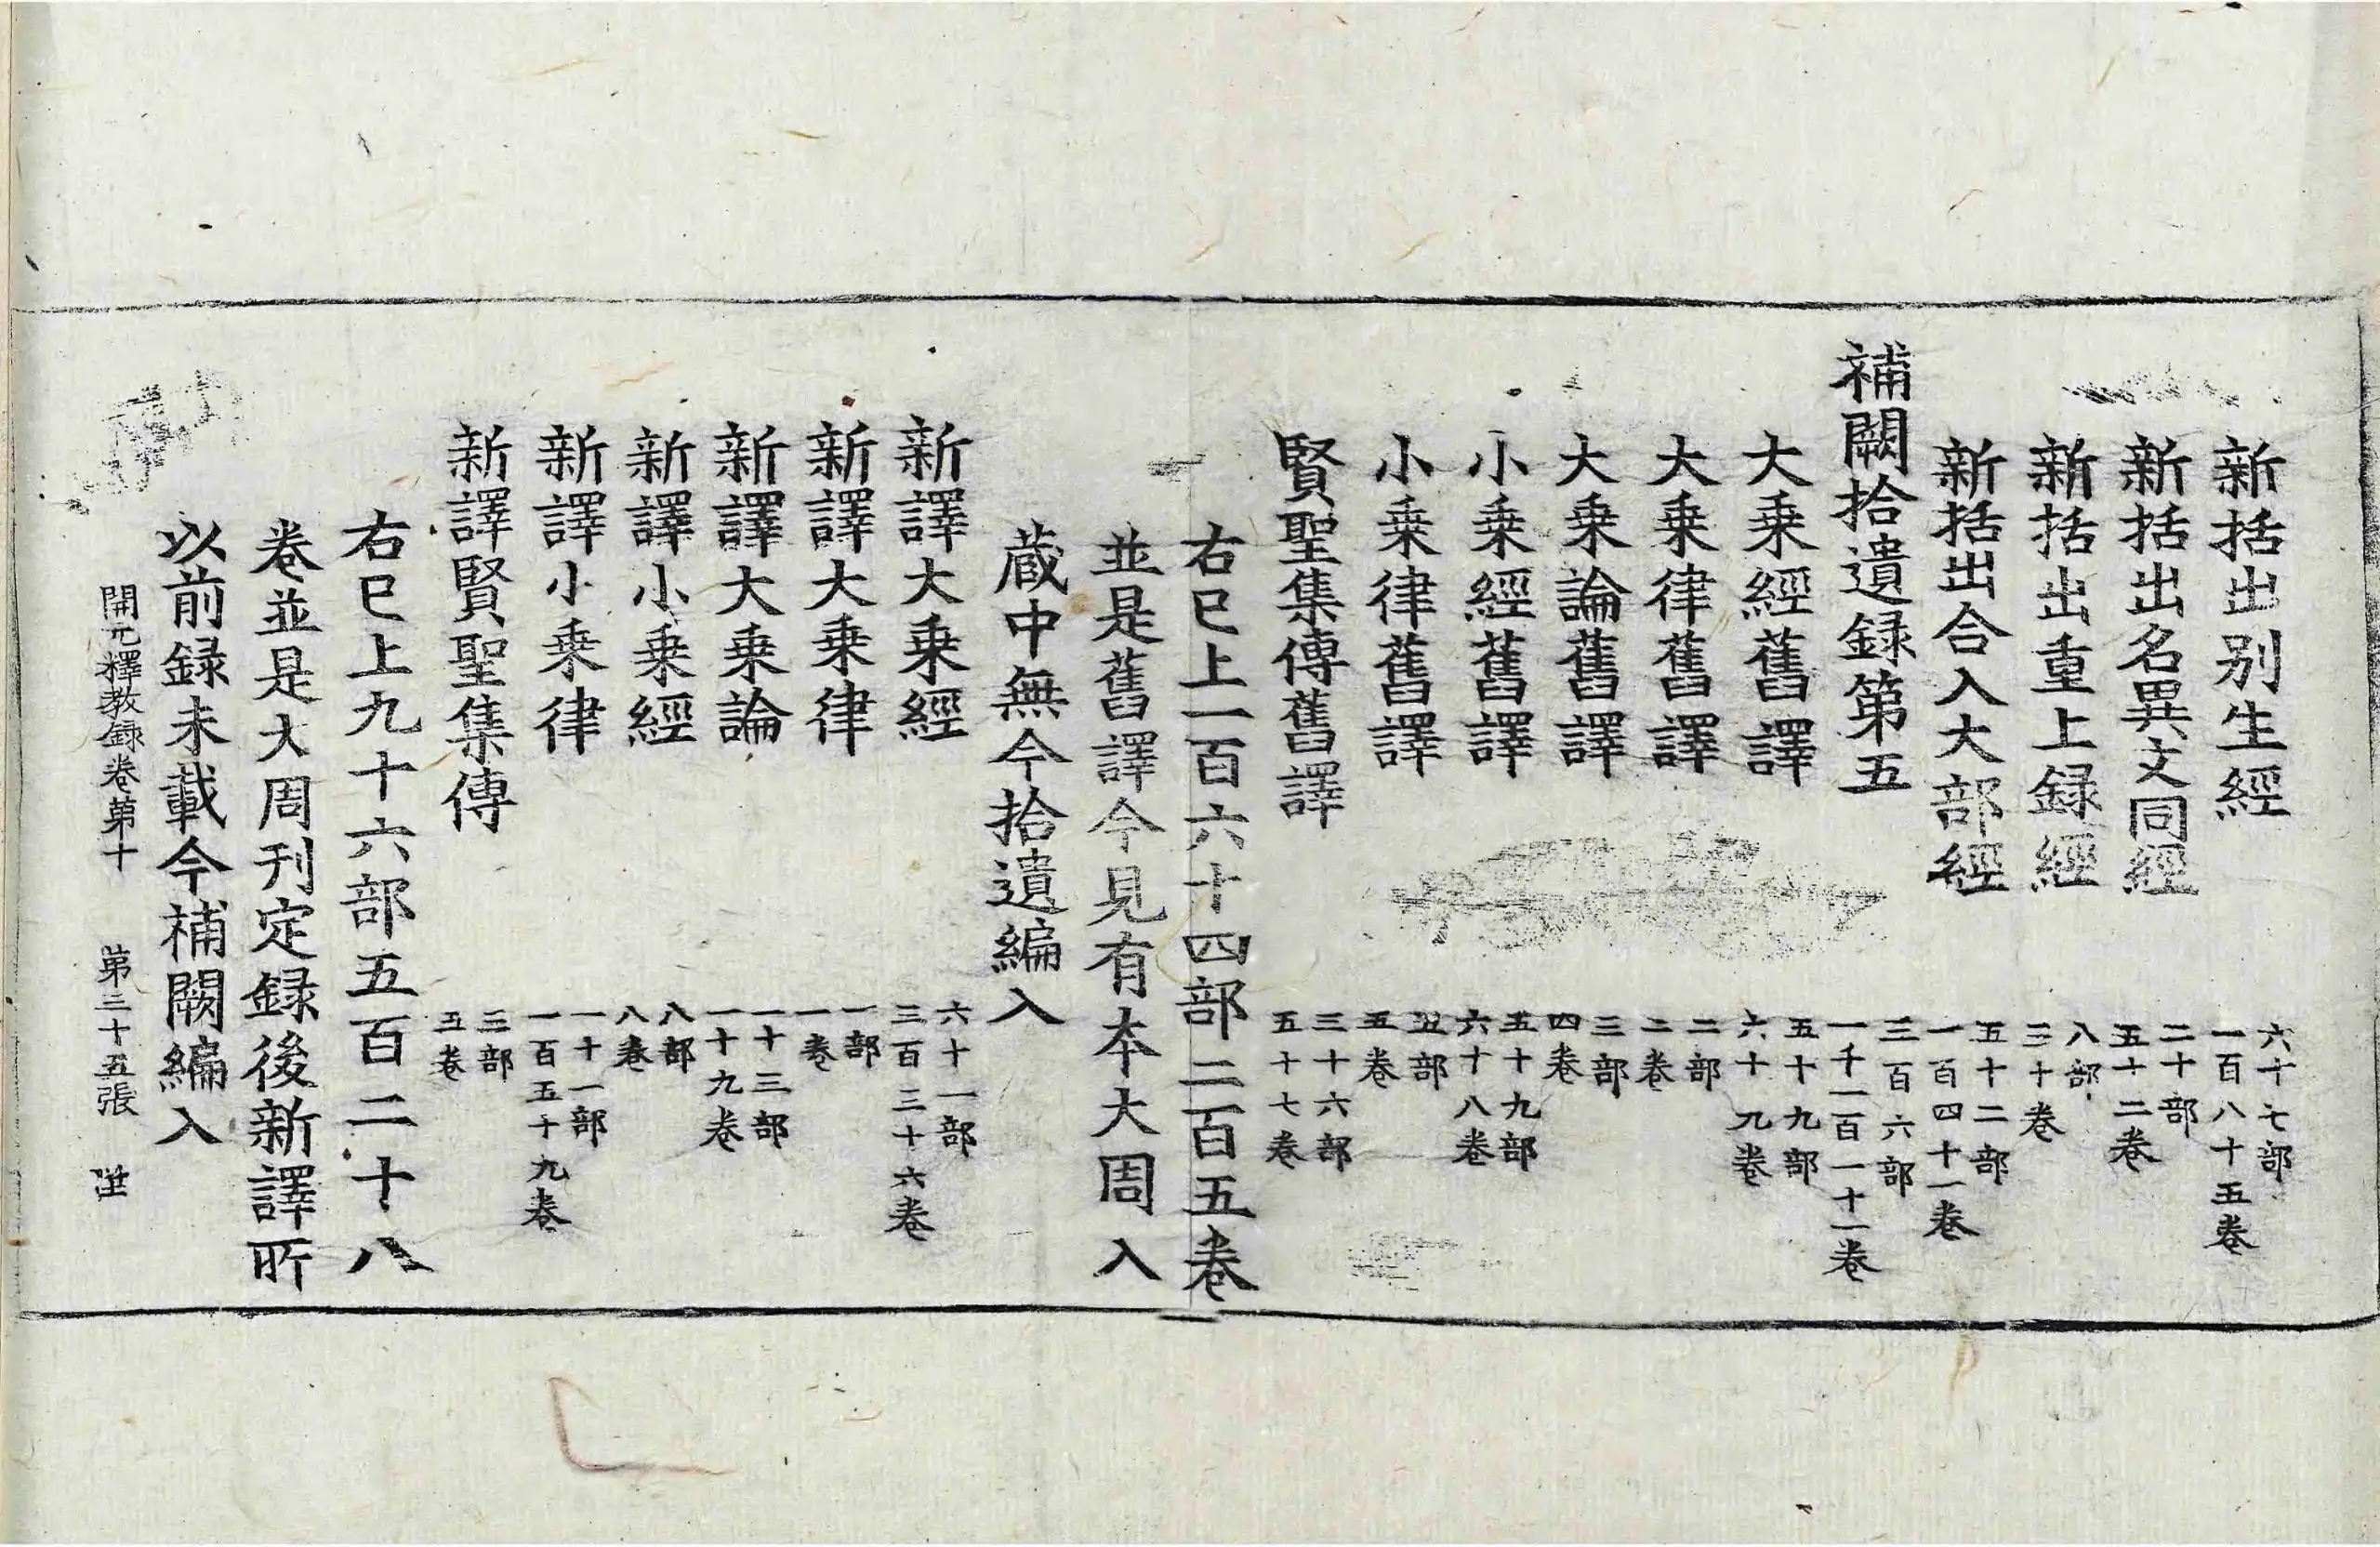 新括出別生經 六十七部 一百八十五卷
新括出名異文同經 二十部 五十二卷
新括出重上録經 八部 三十卷
新括出合入大部經 五十二部 一百四十一卷
補闕拾遺録第五 三百六部 一千一百一十一卷
大乗經舊譯 五十九部 六十九卷
大乗律舊譯 二部 二卷
大乗論舊譯 三部 四卷
小乗經舊譯 五十九部 六十八卷
小乗律舊譯 五部 五卷
賢聖集傳舊譯 三十六部 五十七卷
右巳上一百六十四部二百五卷
並是舊譯今見有本大周入
蔵中無今拾遺編入
新譯大乗經 六十一部 三百三十六卷
新譯大乗律 一部 一卷
新譯大乗論 一十三部 一十九卷
新譯小乗經 八部 八卷
新譯小乗律 一十一部 一百五十九卷
新譯賢聖集傳 三部 五卷
右巳上九十六部五百二十八
卷並是大周刊定録後新譯所
以前録未載今補闕編入
開元釋教録卷第十 第三十五張